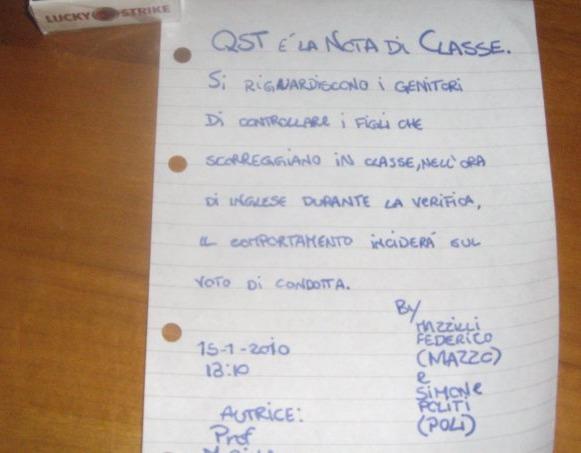 LUCKY STRIKE
QST É LA NOTA DI CLASSE.
Si RIGUARDISCONO i GENITORI
Di CONTROLLARE i FIGLI CHE
SCORREGGIANO IN CLASSE, NELL'ORA
Di INGLESE DURANTE LA VERIFICA,
IL COMPORTAMENTO INCIDERÁ SUL
VOTO DI CONDOTTA.
By
MAZZILLI
FEDERICO
(MAZZO)
e
SIMONE
POLITI
(POLI)
15-1-2010
13:10
AUTRICE:
Prof